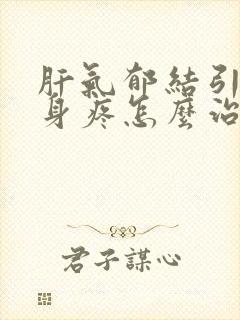 肝氣郁結引
身疼怎麼治
君子謀心